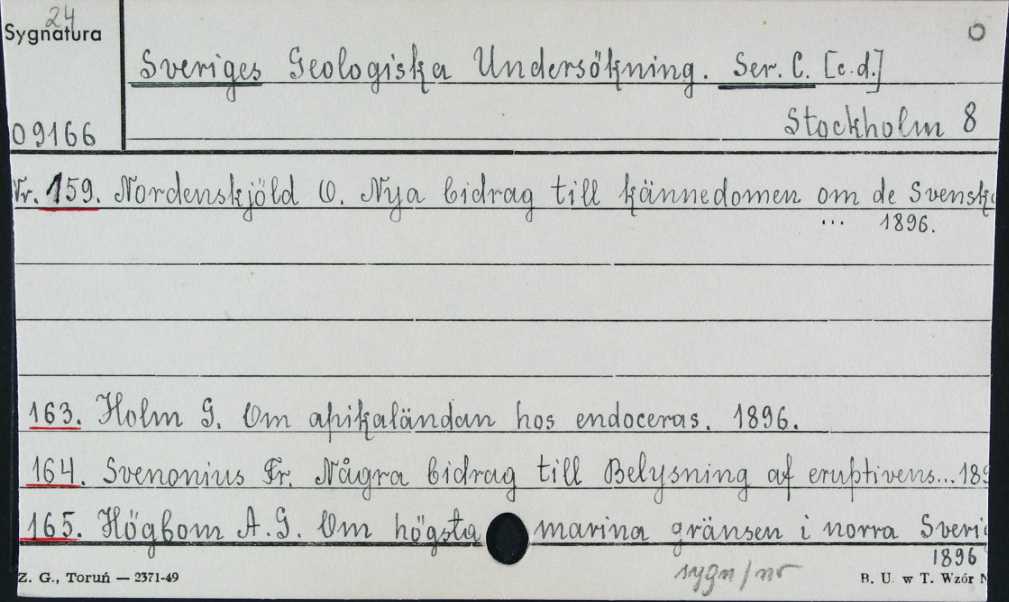 24
Sygnatura
Sveriges Geologiska Undersökning. Ser. C. [c.d.]
09166
Stockholm 8
Nr. 159. Nordenskjöld O. Nya bidrag till kännedomen om de Svensk
... 1896.
163. Holm G. Om apikaländan hos endoceras. 1896.
164. Svenonius Fr. Några bidrag till Belysning af eruptivens... 189
165. Högbom A. G. Om högsta marina gränsen i norra Sveri
1896
sygn/nr
Z. G., Toruń — 2371-49
B. U. w T. Wzór N